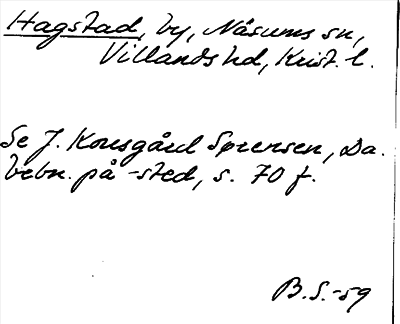 Hagstad, by, Näsums sn,
Villands hd, Krist. l.
Se J. Kousgård Sørensen, Da.
bebn. på -sted, s. 70 f.
B.S.-59